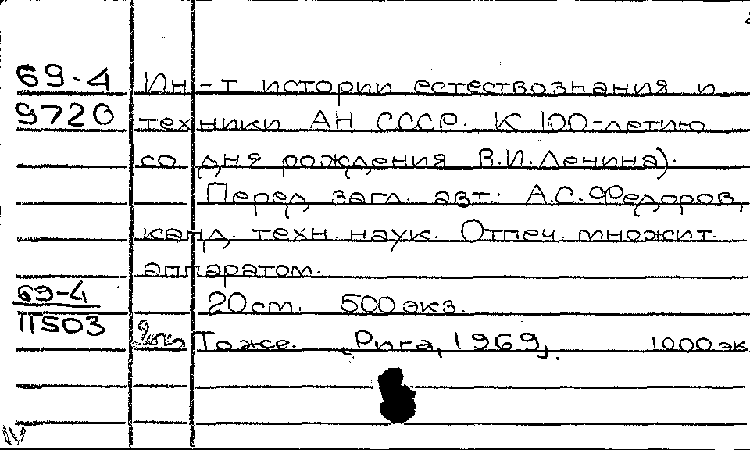 69-4 Ин-т истории естествознания и
9720 техники АН СССР. К 100-летию
со дня рождения В.И.Ленина).
Перед загл. авт: А.С.Федоров,
канд. техн. наук. Отпеч. множит.
аппаратом.
69-4
20 см. 500 экз.
11503 Тоже. Рига, 1969. 1000 эк